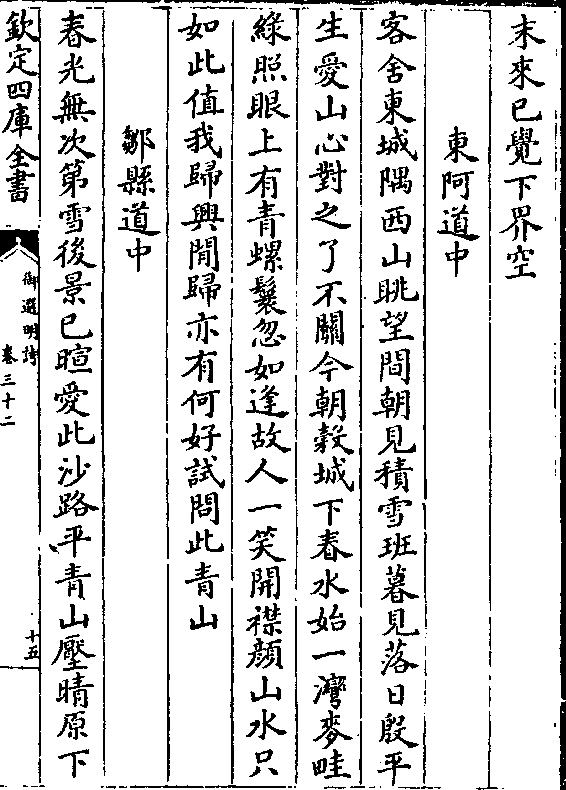 末來已覺下界空
東阿道中
客舍東城隅西山眺望間朝見積雪班暮見落日殷平
生愛山心對之了不關今朝穀城下春水始一灣麥畦
綠照眼上有青螺鬟忽如逢故人一笑開襟顏山水只
如此值我歸興閒歸亦有何好試問此青山
鄒縣道中
春光無次第雪後景已暄愛此沙路平青山壓晴原下
欽定四庫全書
御選明詩
卷三十二
十五